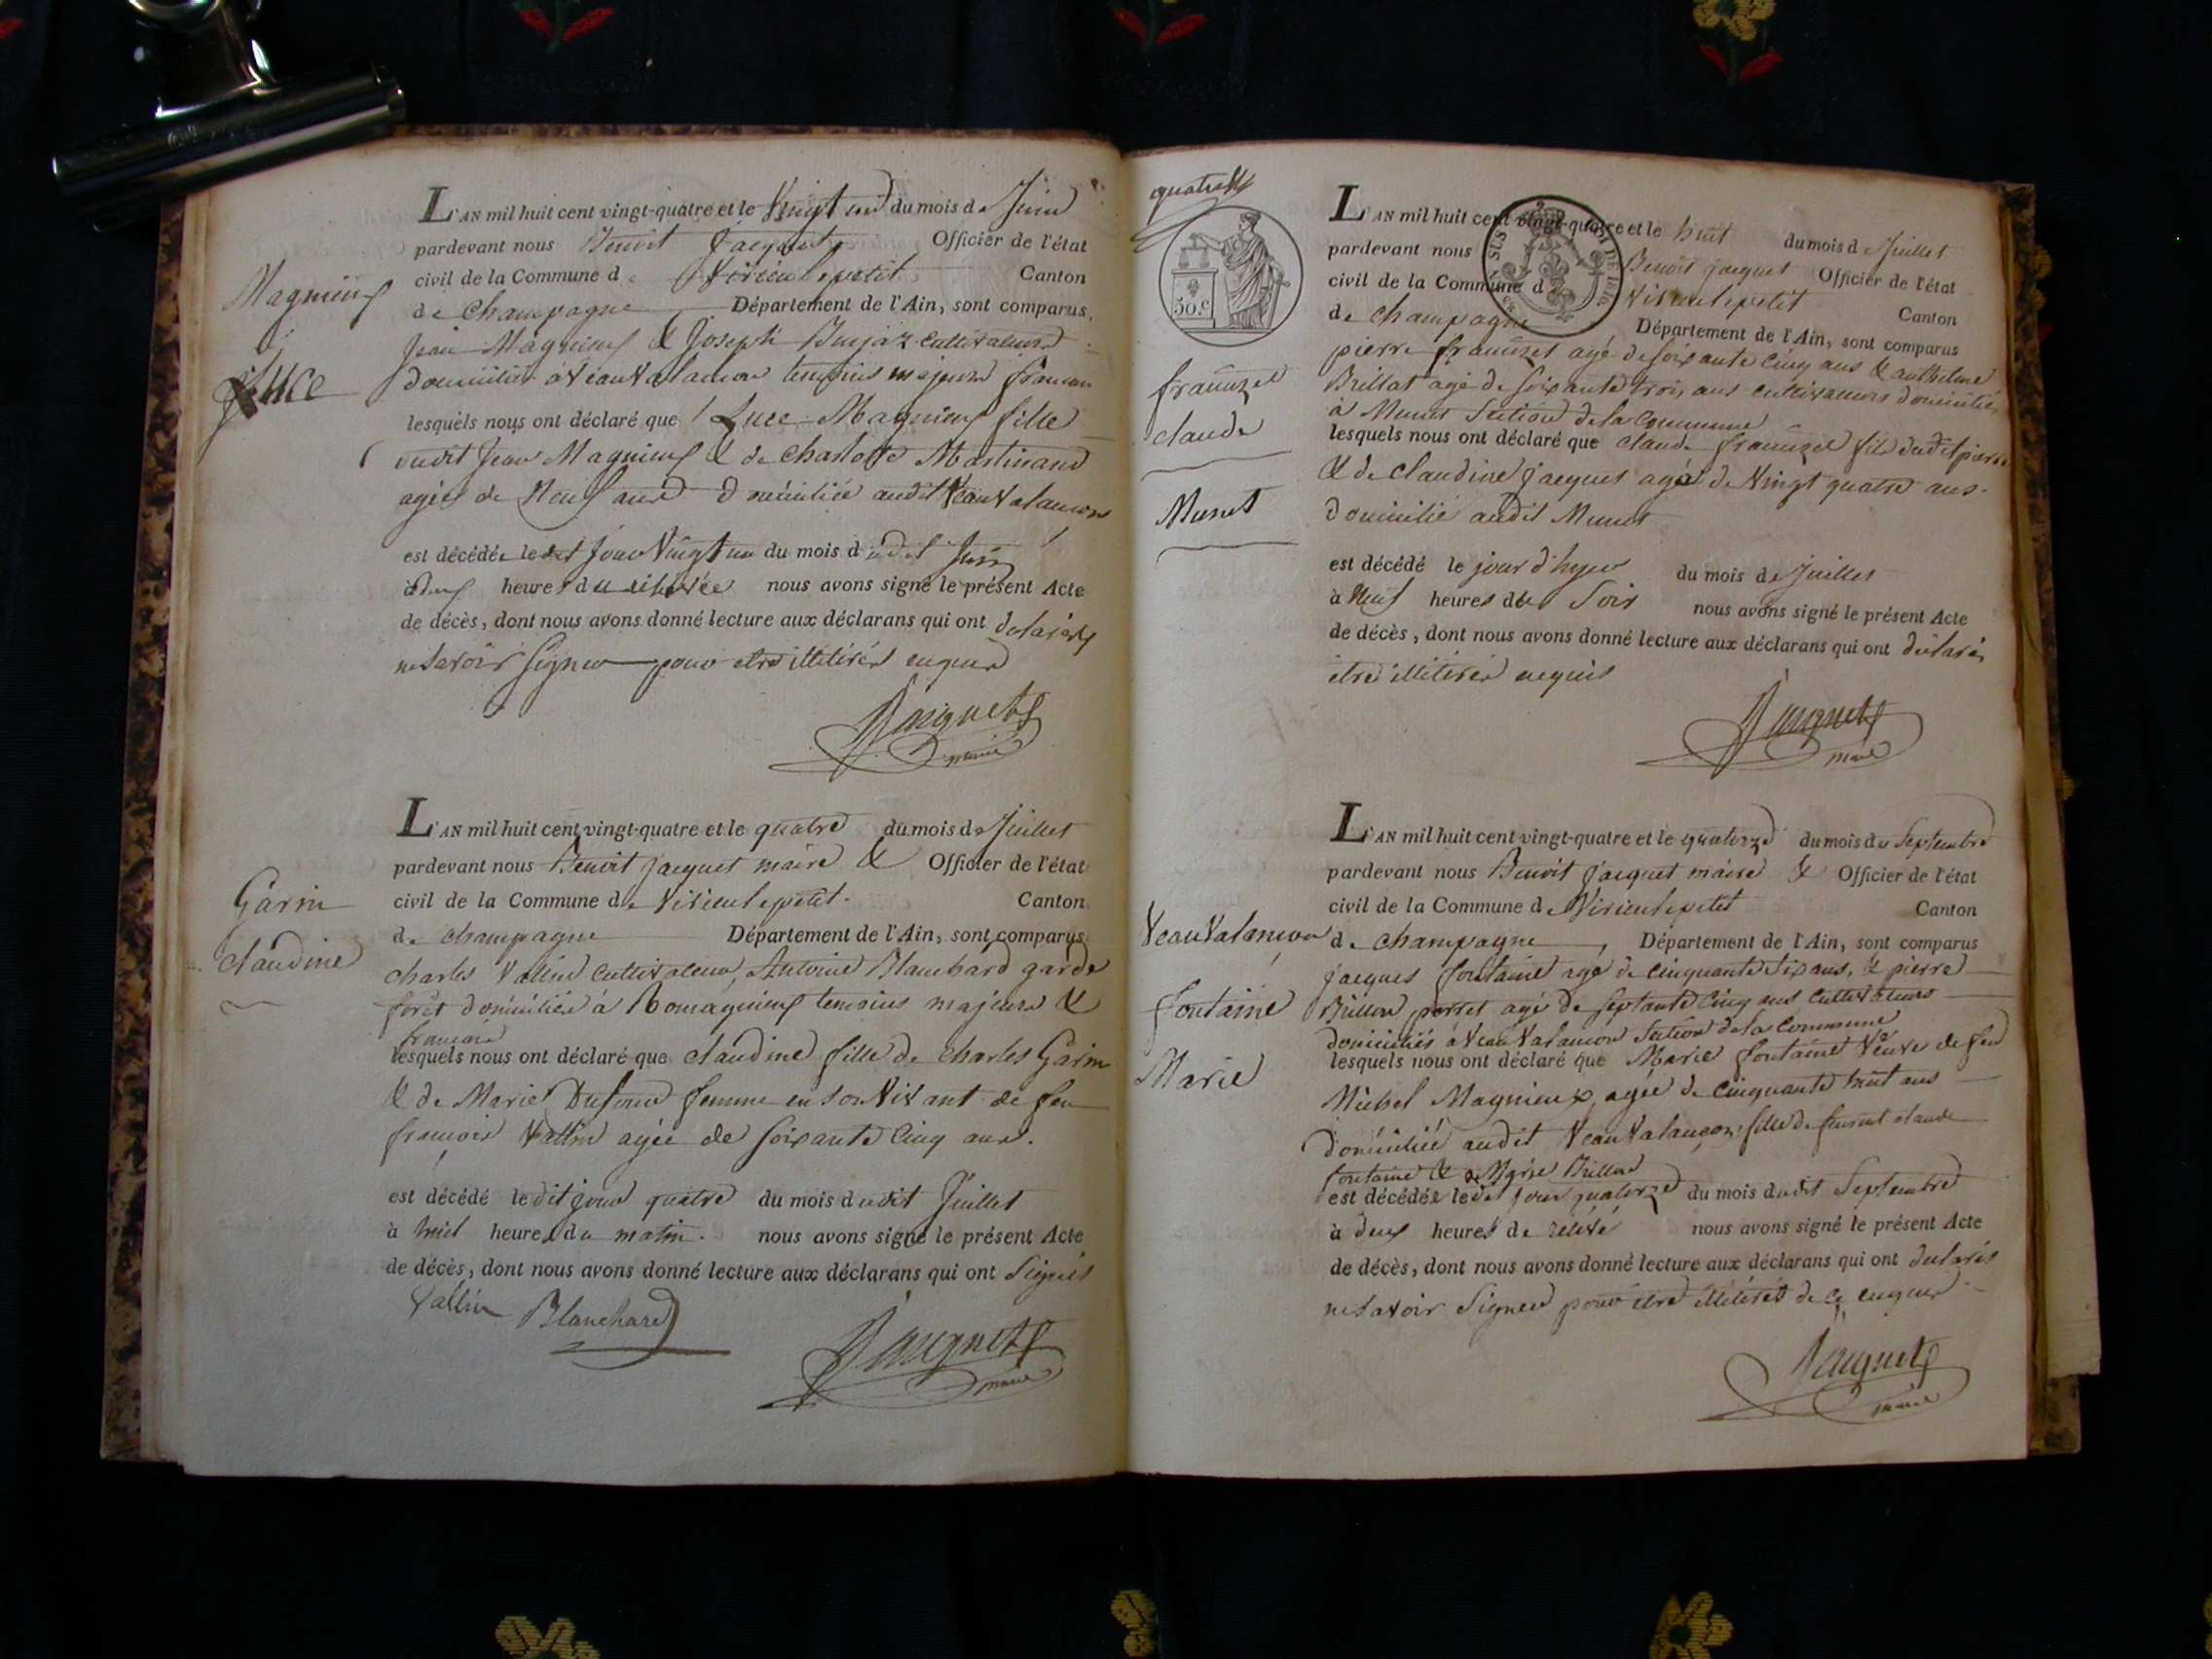 L'AN mil huit cent vingt-quatre et le Vingt un du mois de Juin
pardevant nous Benoit Jacquet Officier de l'état
civil de la Commune de Virieu le petit Canton
de Champagne Département de l'Ain, sont comparus,
Jean Magnieux & Joseph Burjaz cultivateurs
domiciliés à Veauvalancon temoins majeurs francais
lesquels nous ont déclaré que Luce Magnieux fille
dudit Jean Magnieux & de Charlotte Martinand
agée de Neuf ans Domiciliée audit Veauvalancon
est décédée le dit jour Vingt un du mois dudit Juin
à deux heures de relevée nous avons signé le présent Acte
de décès, dont nous avons donné lecture aux déclarans qui ont declarés
ne savoir signer pour etre illiterés enquis
Jacquet
maire
Magnieux
Luce
L'AN mil huit cent vingt-quatre et le quatre du mois de Juillet
pardevant nous Benoit Jacquet maire & Officier de l'état
civil de la Commune de Virieu le petit. Canton
de champagne Département de l'Ain, sont comparus
charles Vallin cultivateur, Antoine Blanchard garde
forêt domiciliés à Romagnieux temoins majeurs &
francais
lesquels nous ont déclaré que claudine fille de charles Garin
& de Marie Dufour femme en son Vivant de feu
francois Vallin agée de soixante cinq ans.
est décédé ledit jour quatre du mois dudit Juillet
à huit heures du matin. nous avons signé le présent Acte
de décès, dont nous avons donné lecture aux déclarans qui ont signés
Vallin Blanchard
Jacquet
maire
Garin
claudine
quatre
50.c
L'AN mil huit cent vingt-quatre et le huit du mois de Juillet
pardevant nous Benoit jacquet Officier de l'état
civil de la Commune de Virieu le petit Canton
de champagne Département de l'Ain, sont comparus
pierre francizet agé de soixante cinq ans & anthelme
Brillat agé de soixante trois ans cultivateurs domiciliés
à Munet Section de la Commune
lesquels nous ont déclaré que claude francizet fils dudit pierre
& de claudine jacquet agé de Vingt quatre ans.
domicilié audit Munet
est décédé le jour d'hyer du mois de Juillet
à Neuf heures du Soir nous avons signé le présent Acte
de décès, dont nous avons donné lecture aux déclarans qui ont déclarés
etre illiterés enquis
Jacquet
maire
francizet
claude
Munet
L'AN mil huit cent vingt-quatre et le quatorze du mois de Septembre
pardevant nous Benoit Jacquet maire & Officier de l'état
civil de la Commune de Virieu le petit Canton
de champagne, Département de l'Ain, sont comparus
jacques fontaine agé de cinquante six ans, & pierre
Brillon perret agé de septante cinq ans cultivateurs
domiciliés à Veauvalancon Section de la Commune
lesquels nous ont déclaré que Marie fontaine Veuve de feu
Michel Magnieux, agée de cinquante huit ans
domiciliée audit Veauvalancon, fille de claude
fontaine & de Marie Brillon
est décédée ledit jour quatorze du mois dudit Septembre
à deux heures de relevé nous avons signé le présent Acte
de décès, dont nous avons donné lecture aux déclarans qui ont declarés
ne savoir signer pour etre illiterés de ce enquis
Jacquet
maire
Veauvalancon
fontaine
Marie